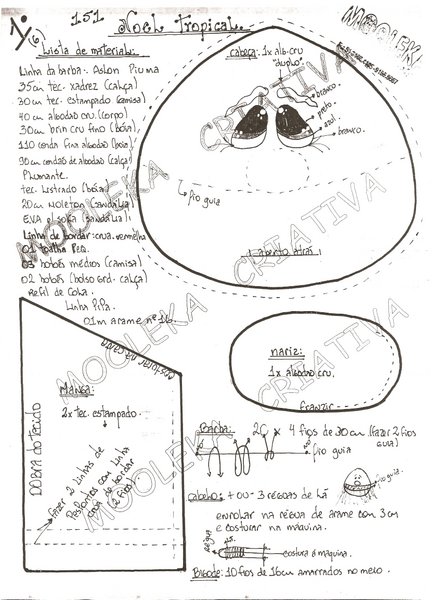 1
(6)
151 Noel Tropical.
MOOLEKA
Lista de material:
Linha da barba: Aslon Piuma
35cm tec. xadrez (calça)
30cm tec. estampado (camisa)
40cm algodão cru. (corpo)
30cm brim cru fino (bóia)
110 corda fina algodão (bóia)
90cm cordão de algodão (calça)
Plumante.
tec. listrado (bóia)
20cm Noleton (sandália)
E.V.A e sola (sandália)
Linha de bordar: crua. vermelha
01 toalha peq.
03 botões médios (camisa)
02 botões (bolso Grd. calça)
Refil de cola.
Linha Pipa.
01m arame nº 16.
cabeça: 1x alg. cru
"duplo"
branco
preto.
azul.
branco.
fio guia
1 aberto atrás.
costurar na cava
Manga:
2x tec. estampado.
DOBRA do tecido
fazer 2 linhas de
pespontos com linha
crua de bordar
(2 fios)
nariz:
1x algodão cru.
franzir
Barba: 20 x 4 fios de 30cm (fazer 2 fios
guia)
fio guia
fio guia.
Cabelo: + ou - 3 réguas de lã
enrolar na régua de arame com 3cm
e costurar na máquina.
Régua
costura á maquina.
Bigode: 10 fios de 16cm amarrados no meio.
MOOLEKA CRIATIVA
MOOLEKA CRIATIVA
MOOLEKA CRIATIVA